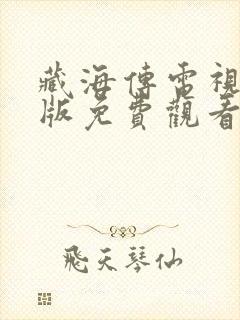 藏海傳電視
版免費觀看
飛天琴仙